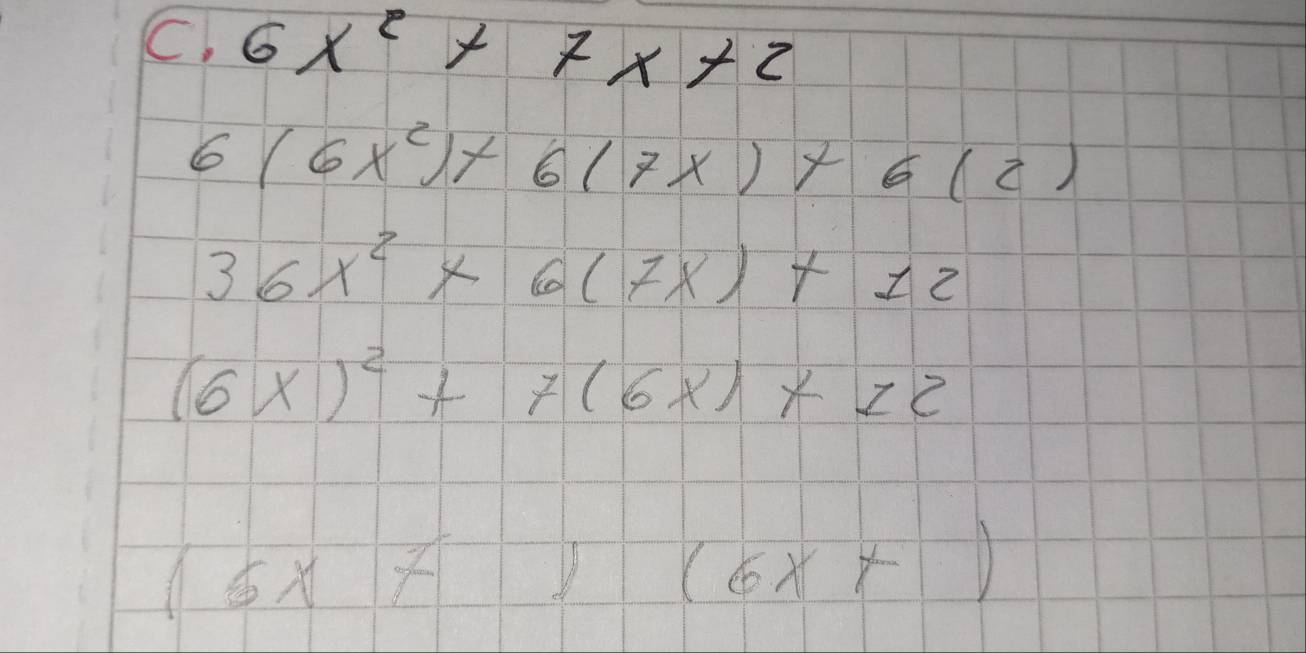 C. 6x² + 7x + 2
6(6x²) + 6(7x) + 6(2)
36x² + 6(7x) + 12
(6x)² + 7(6x) + 12
(6x + ) (6x + )